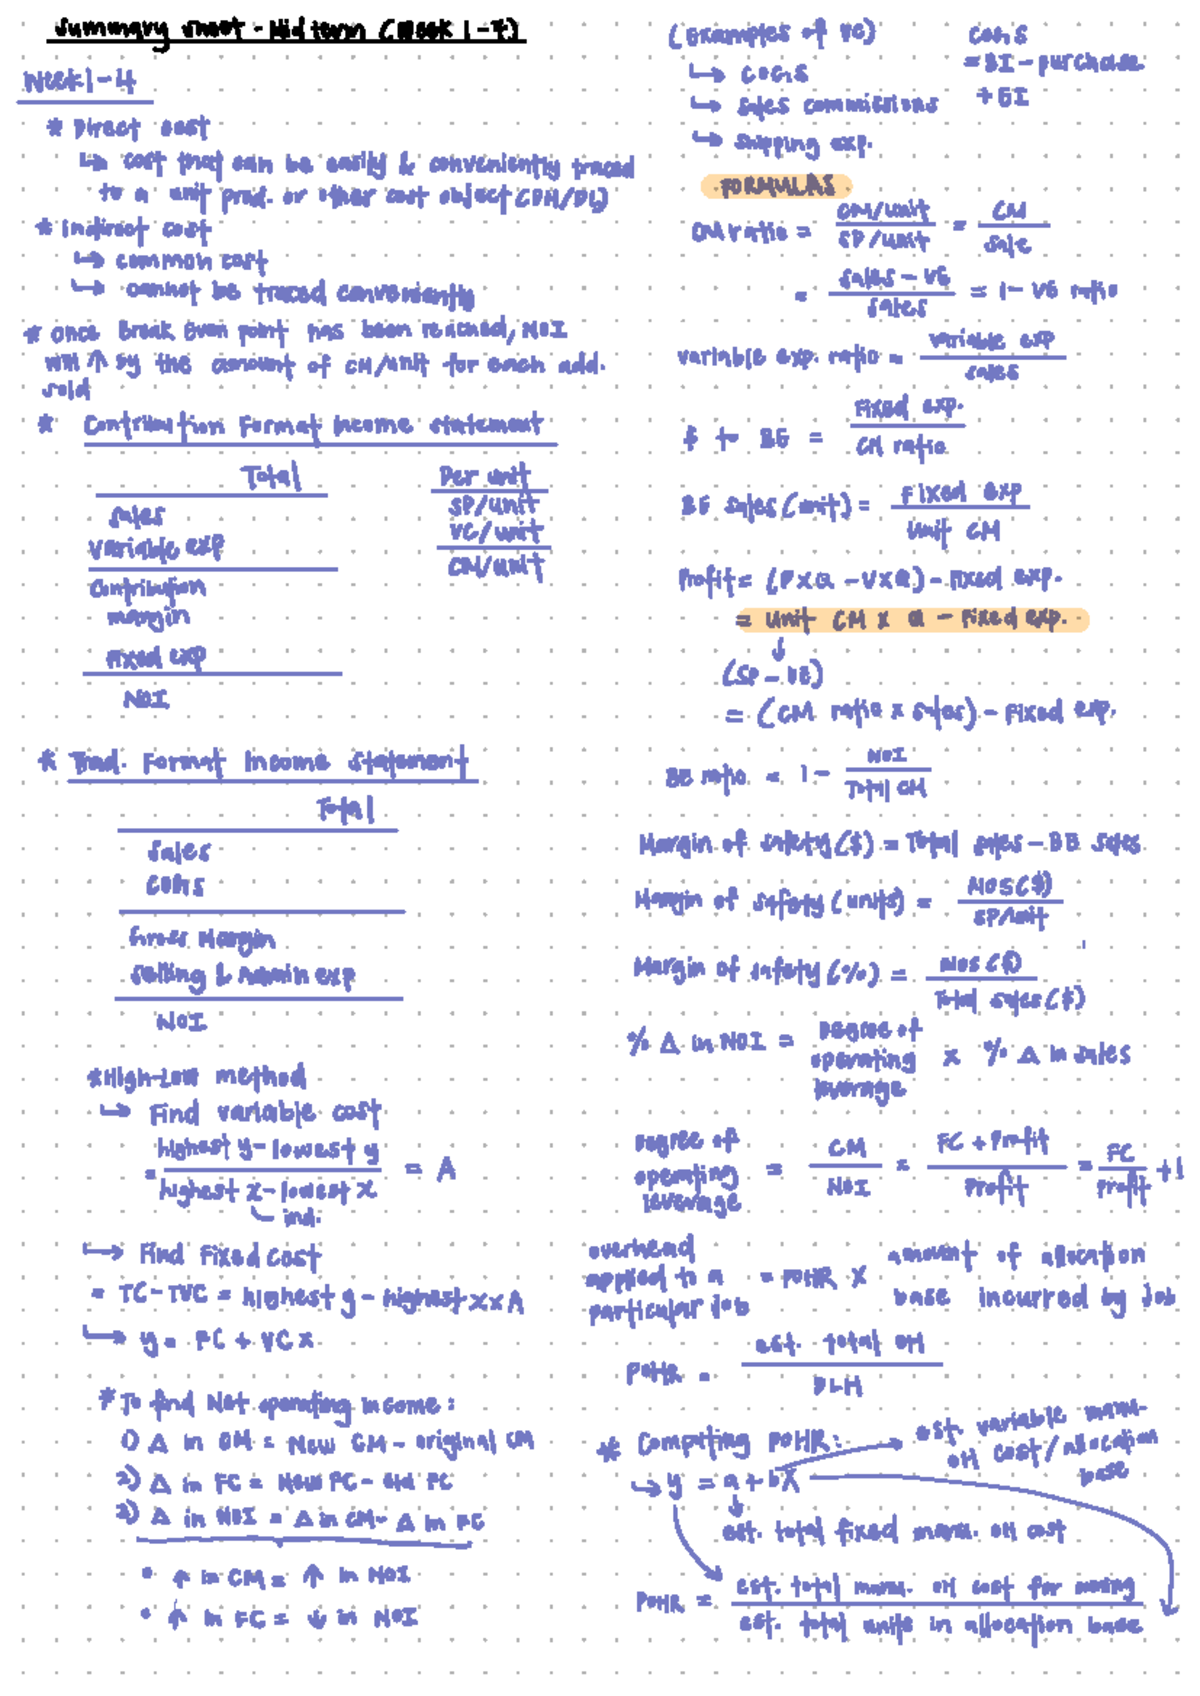 Summary sheet - Midterm (Week 1-7)
Week 1-4
* Direct cost
↳ cost that can be easily & conveniently traced
to a unit prod. or other cost object (DM/DL)
* Indirect cost
↳ common cost
↳ cannot be traced conveniently
* Once Break Even point has been reached, NOI
will ↑ by the amount of CM/unit for each add.
sold
* Contribution Format Income Statement
Total
Per unit
Sales
SP/unit
Variable exp
VC/unit
Contribution
margin
CM/unit
Fixed exp
NOI
* Trad. Format Income Statement
Total
Sales
COGS
Gross Margin
Selling & Admin exp
NOI
* High-Low method
↳ Find variable cost
= highest y - lowest y / highest x - lowest x = A
ind.
↳ Find Fixed Cost
= TC - TVC = highest y - highest x × A
↳ y = FC + VC x
* To find Net operating income:
1) Δ in CM = New CM - original CM
2) Δ in FC = New FC - old FC
3) Δ in NOI = Δ in CM - Δ in FC
• ↑ in CM = ↑ in NOI
• ↑ in FC = ↓ in NOI
(Examples of VC)
↳ COGS
↳ sales commissions
↳ shipping exp.
COGS
= BI - purchase
+ EI
FORMULAS
CM ratio = CM/unit / SP/unit = CM / Sale
= Sales - VE / Sales = 1 - VE ratio
Variable exp. ratio = variable exp / sales
$ to BE = Fixed exp. / CM ratio
BE sales (unit) = Fixed exp / Unit CM
Profit = (P×Q - V×Q) - Fixed exp.
= Unit CM × Q - Fixed exp.
↓
(SP - VE)
= (CM ratio × sales) - Fixed exp.
BE ratio = 1 - NOI / Total CM
Margin of safety ($) = Total sales - BE sales
Margin of safety (units) = MOS ($) / SP/unit
Margin of safety (%) = MOS ($) / Total sales ($)
% Δ in NOI = Degree of operating leverage × % Δ in sales
Degree of operating leverage = CM / NOI = FC + Profit / Profit = FC / Profit + 1
overhead applied to a particular job = POHR × amount of allocation base incurred by job
POHR = est. total OH / DLH
* Computing POHR:
↳ y = a + bX
→ est. variable manu. OH cost/allocation base
↓
est. total fixed manu. OH cost
POHR = est. total manu. OH cost for / est. total units in allocation base